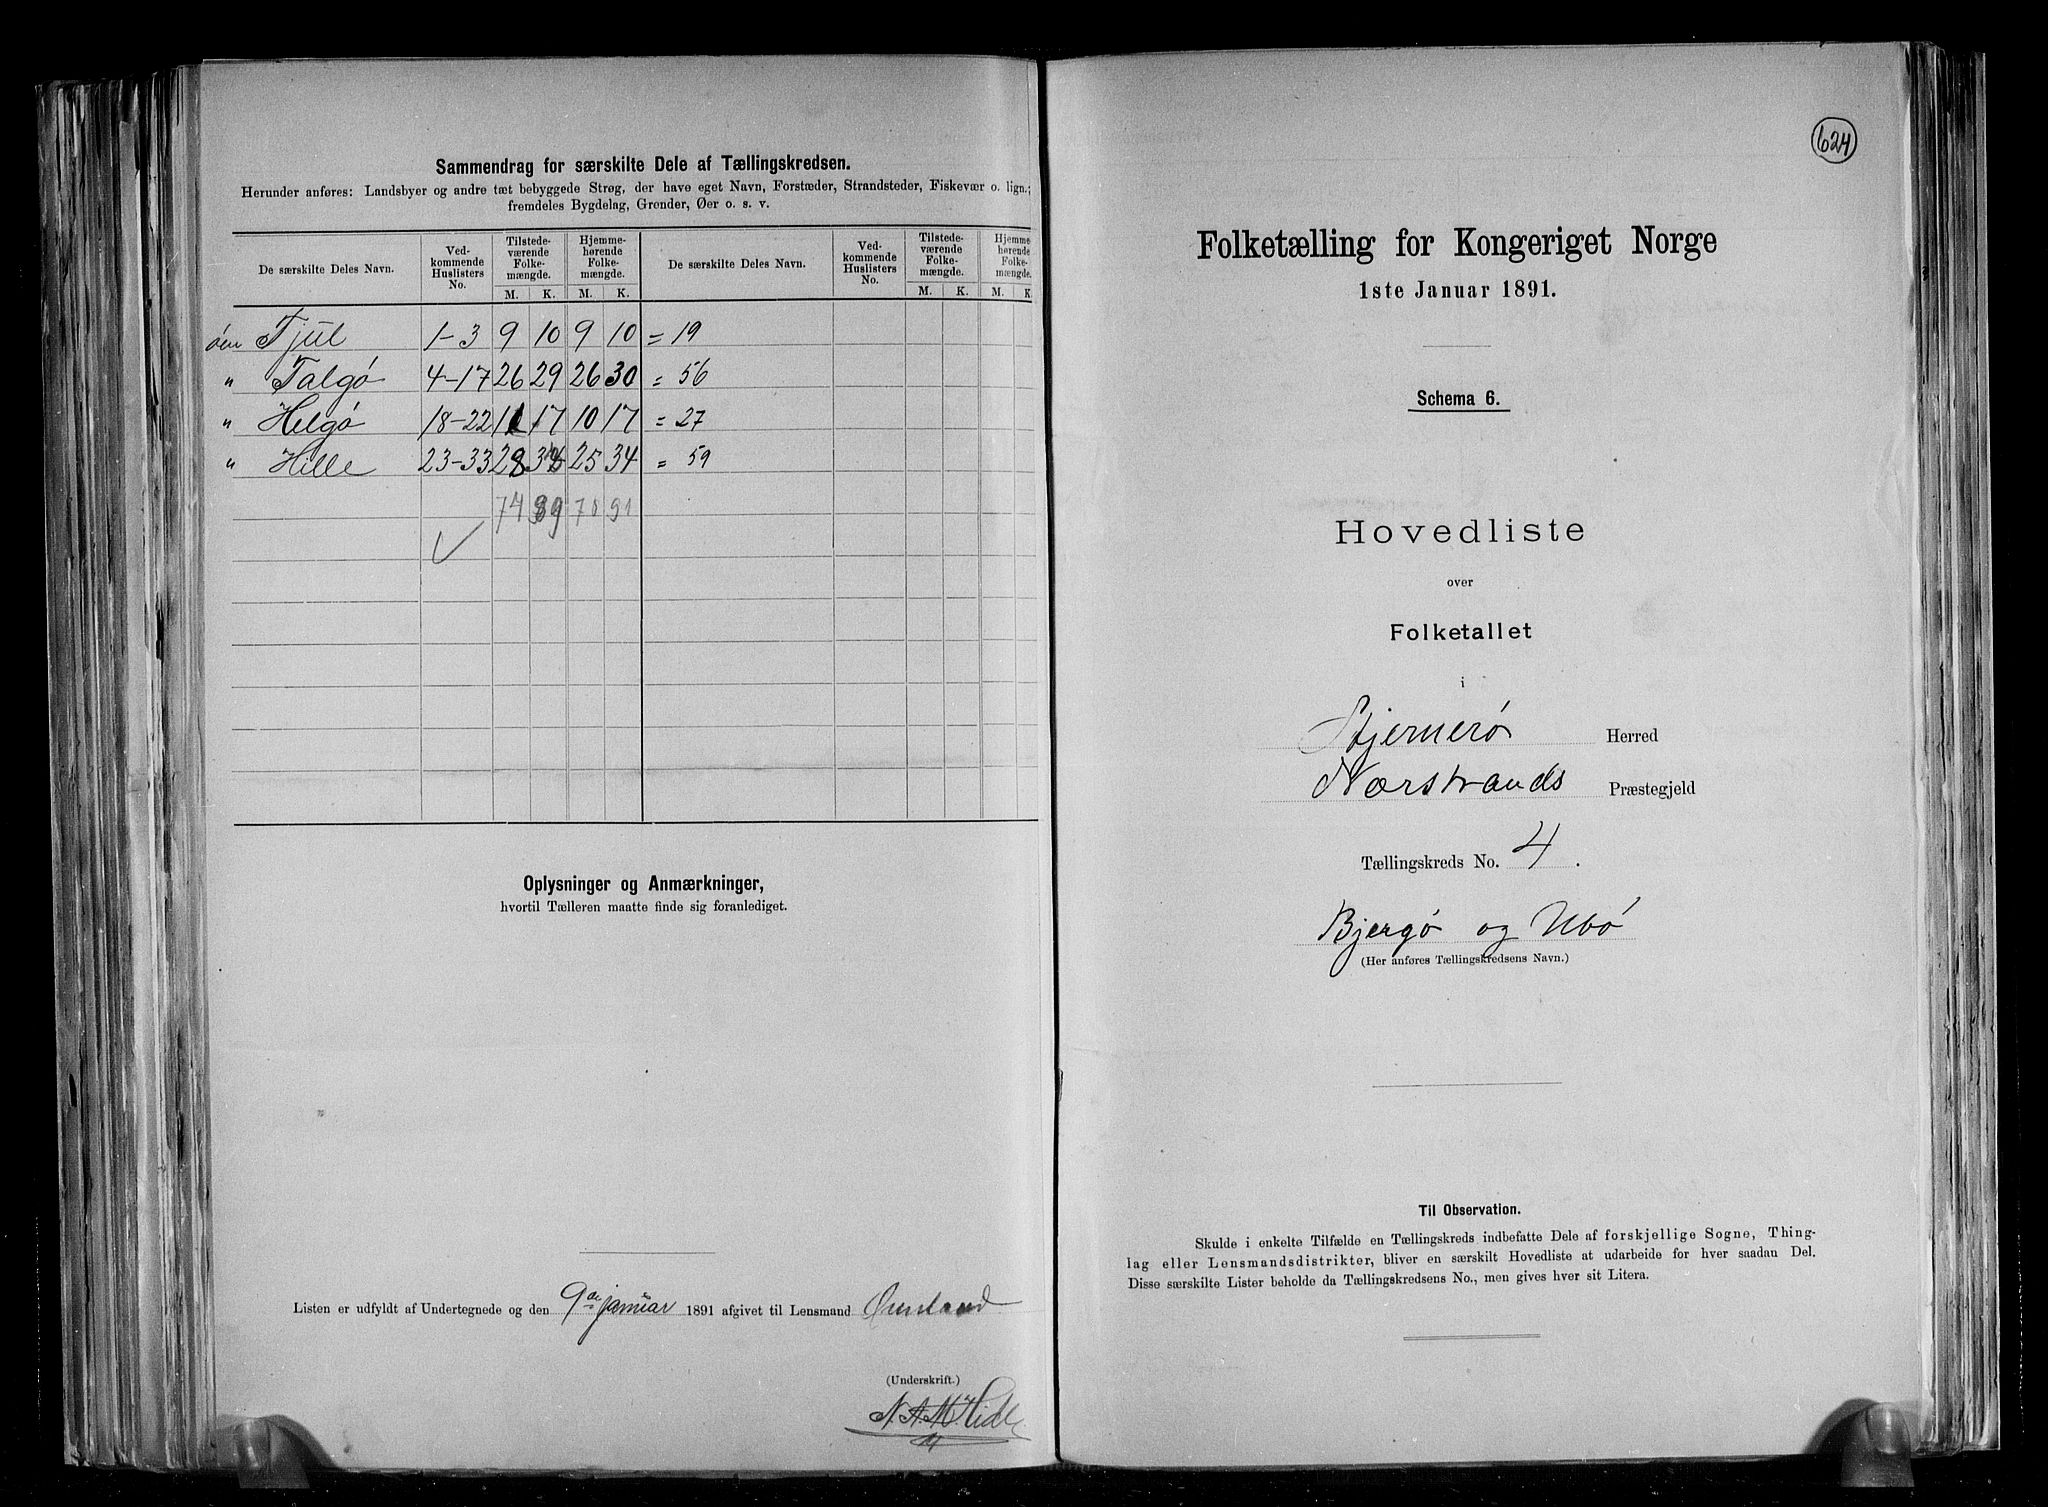 Sammendrag for særskilte Dele af Tællingskredsen.
Herunder anføres: Landsbyer og andre tæt bebyggede Strøg, der have eget Navn, Forstæder, Strandsteder, Fiskevær o. lign.;
fremdeles Bygdelag, Grender, Øer o. s. v.
De særskilte Deles Navn. Vedkommende Huslisters No. Tilstedeværende Folkemængde. Hjemmehørende Folkemængde. De særskilte Deles Navn. Vedkommende Huslisters No. Tilstedeværende Folkemængde. Hjemmehørende Folkemængde.
M. K. M. K. M. K. M. K.
øen Fjul 1-3 9 10 9 10 = 19
" Talgø 4-17 26 29 26 30 = 56
" Helgø 18-22 11 17 10 17 = 27
" Hille 23-33 28 25 34 = 59
74 89 70 91
Oplysninger og Anmærkninger,
hvortil Tælleren maatte finde sig foranlediget.
Listen er udfyldt af Undertegnede og den 9de januar 1891 afgivet til Lensmand
(Underskrift.)
624
Folketælling for Kongeriget Norge
1ste Januar 1891.
Schema 6.
Hovedliste
over
Folketallet
i
Stjernerø Herred
Nærstrands Præstegjeld
Tællingskreds No. 4.
Bjergø og Ubø
(Her anføres Tællingskredsens Navn.)
Til Observation.
Skulde i enkelte Tilfælde en Tællingskreds indbefatte Dele af forskjellige Sogne, Thing-
lag eller Lensmandsdistrikter, bliver en særskilt Hovedliste at udarbeide for hver saadan Del.
Disse særskilte Lister beholde da Tællingskredsens No., men gives hver sit Litera.